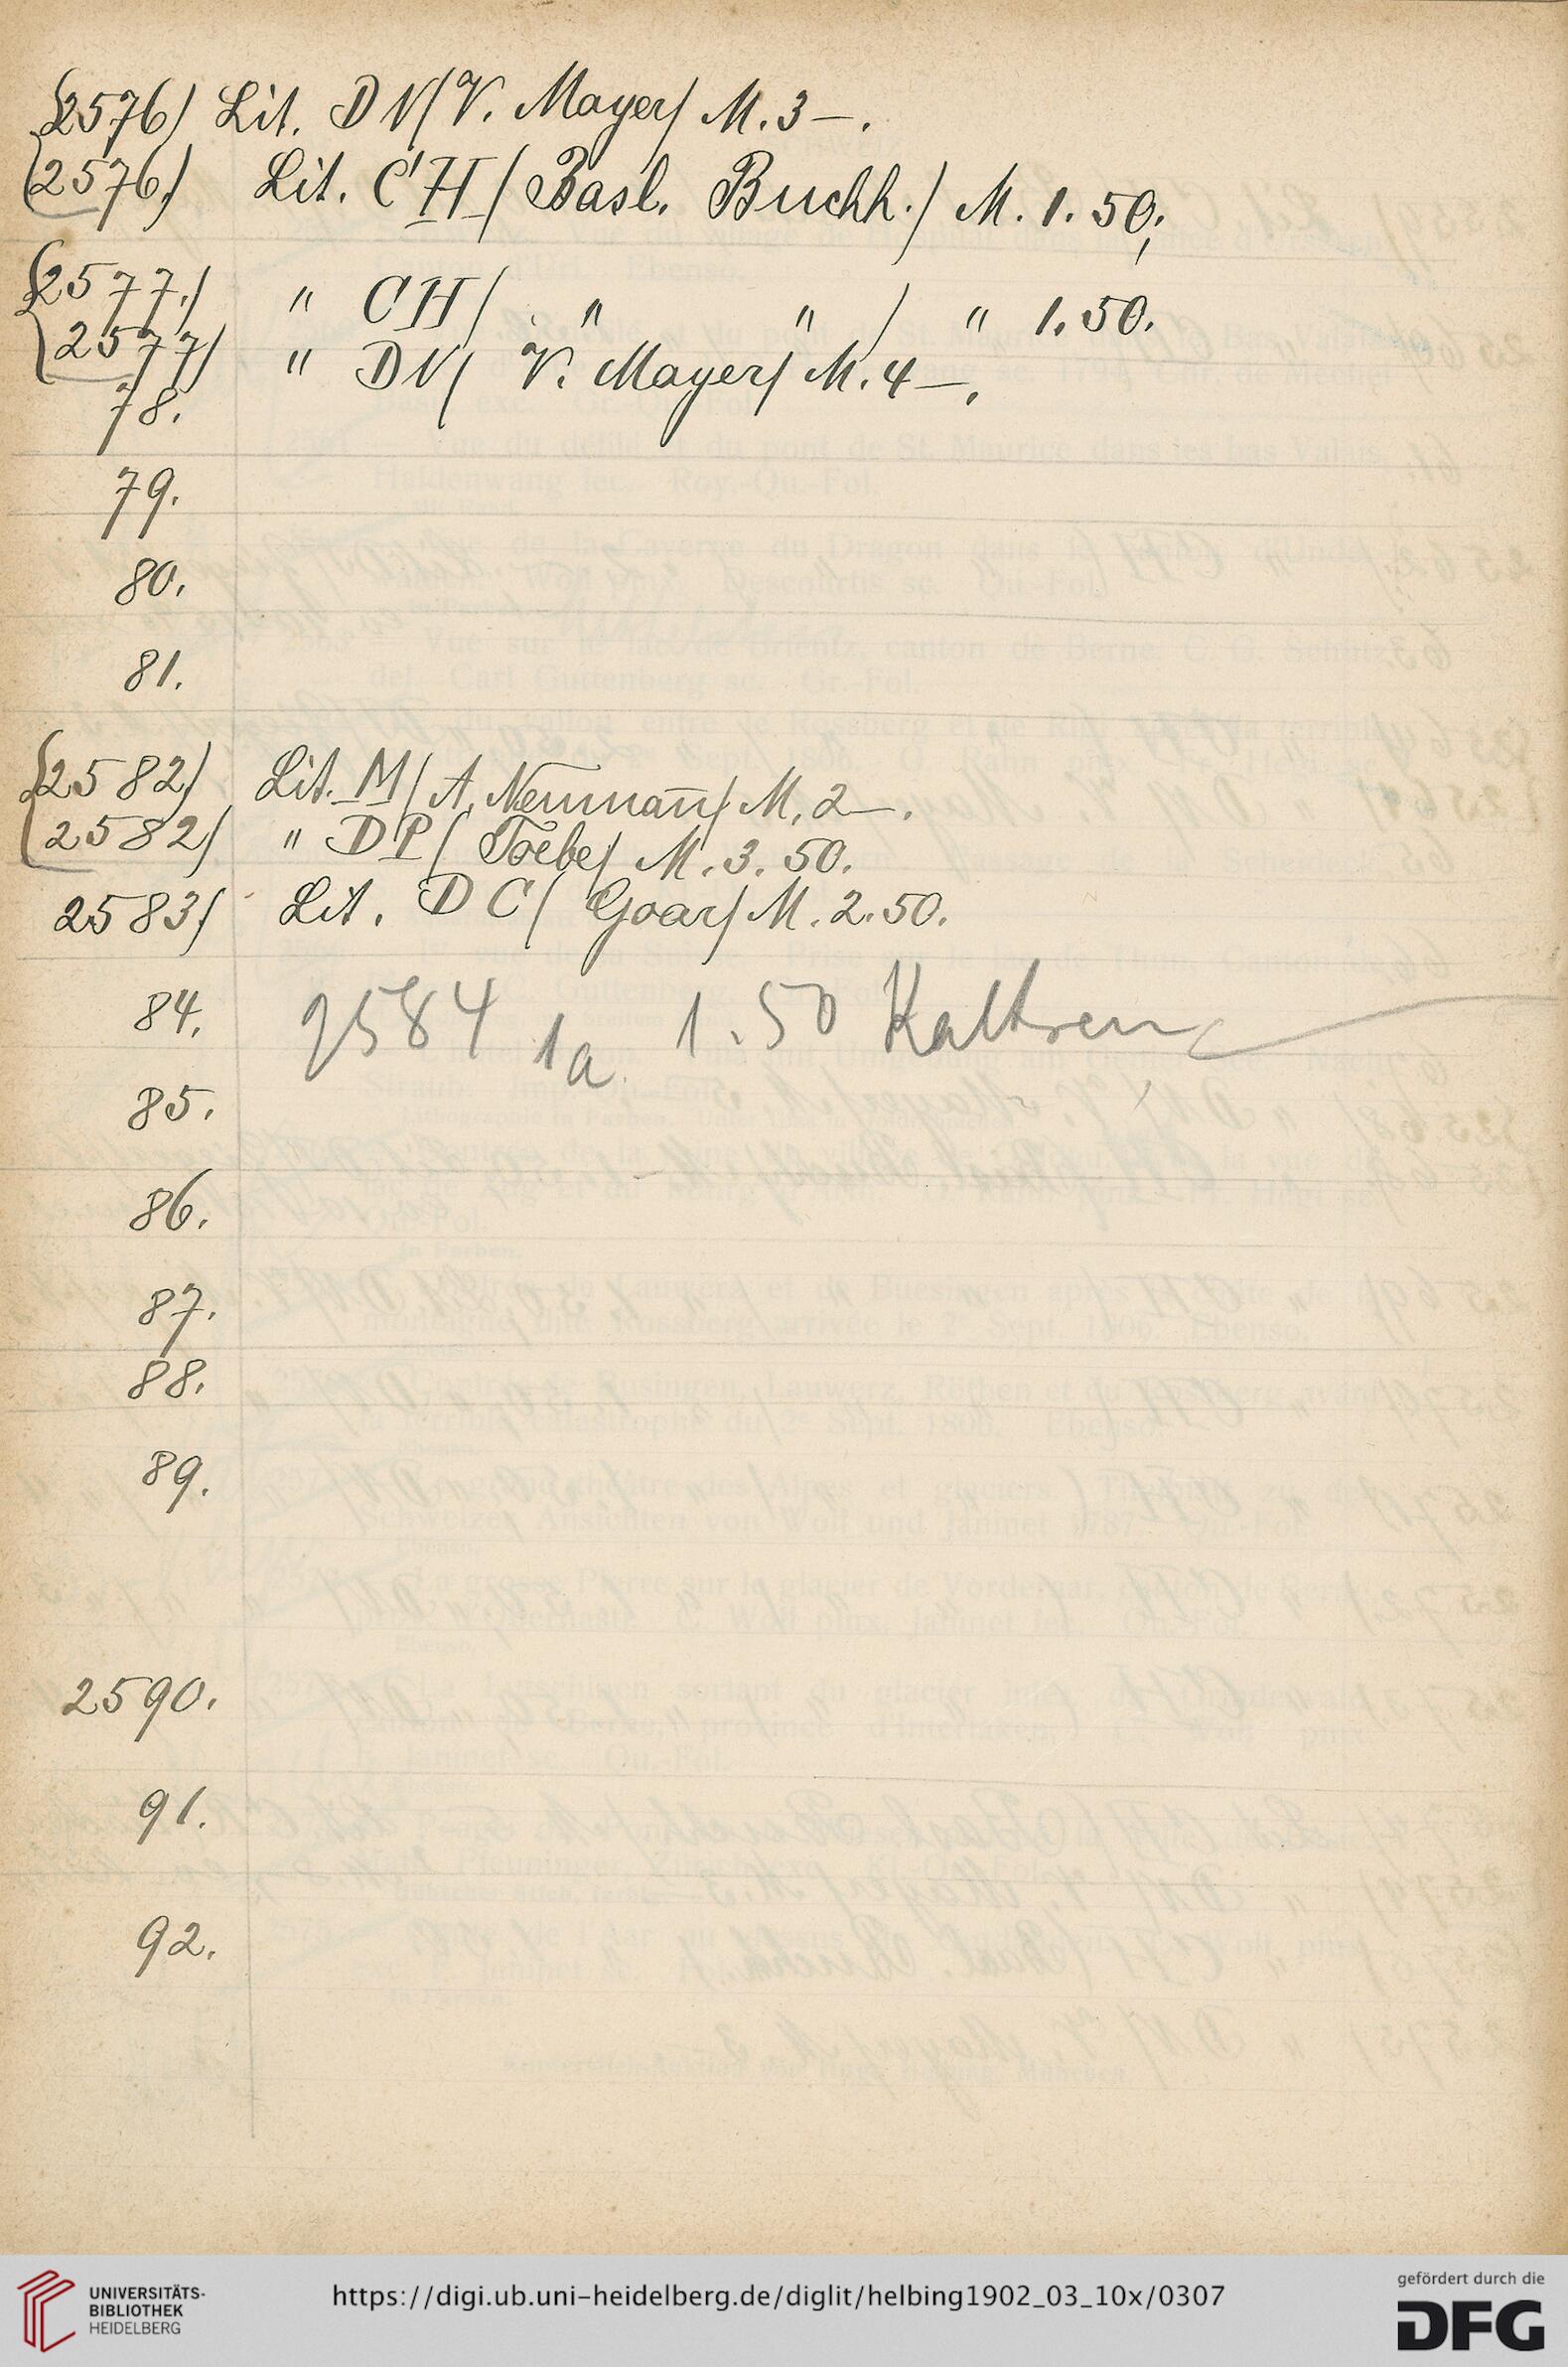 2576) Lit. DN (V. Mayer) M. 3—.
2576) Lit. CH (Basl. Buchh.) M. 1.50;
2577.) " CH ( " " ) " 1.50.
2577) " DN ( V. Mayer) M. 4—.
78.
79.
80.
81.
2582) Lit. M (A. Neumann) M. 2—.
2582) " DP ( Toebe) M. 3.50.
2583) Lit. DC ( Goar) M. 2.50.
84. 2584 1a 1.50
85.
86.
87.
88.
89.
2590.
91.
92.
UNIVERSITÄTS-
BIBLIOTHEK
HEIDELBERG
https://digi.ub.uni-heidelberg.de/diglit/helbing1902_03_10x/0307
gefördert durch die
DFG